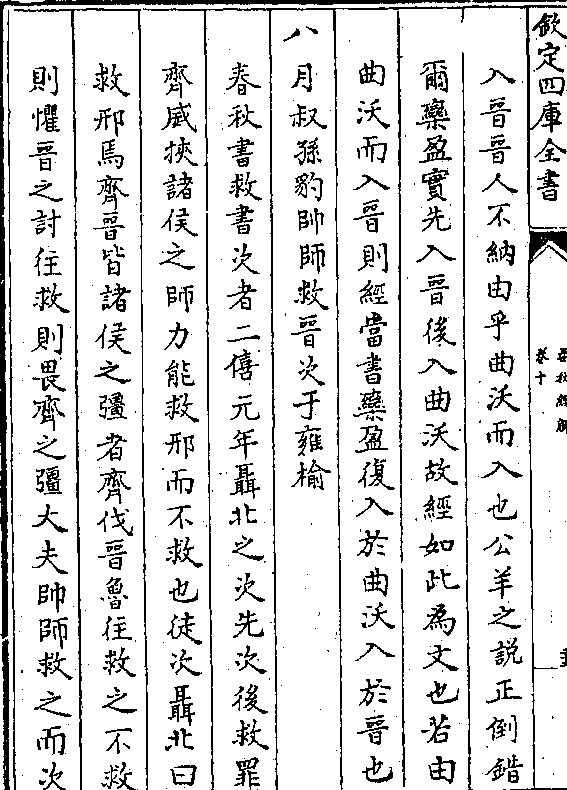 欽定四庫全書
卷十
入晉晉人不納由乎曲沃而入也公羊之説正倒錯
爾欒盈實先入晉後入曲沃故經如此為文也若由
曲沃而入晉則經當書欒盈復入於曲沃入於晉也
八月叔孫豹帥師救晉次于雍榆
春秋書救書次者二僖元年聶北之次先次後救罪
齊威挾諸侯之師力能救邢而不救也徒次聶北曰
救邢焉齊晉皆諸侯之彊者齊伐晉魯往救之不救
則懼晉之討往救則畏齊之彊大夫帥師救之而次